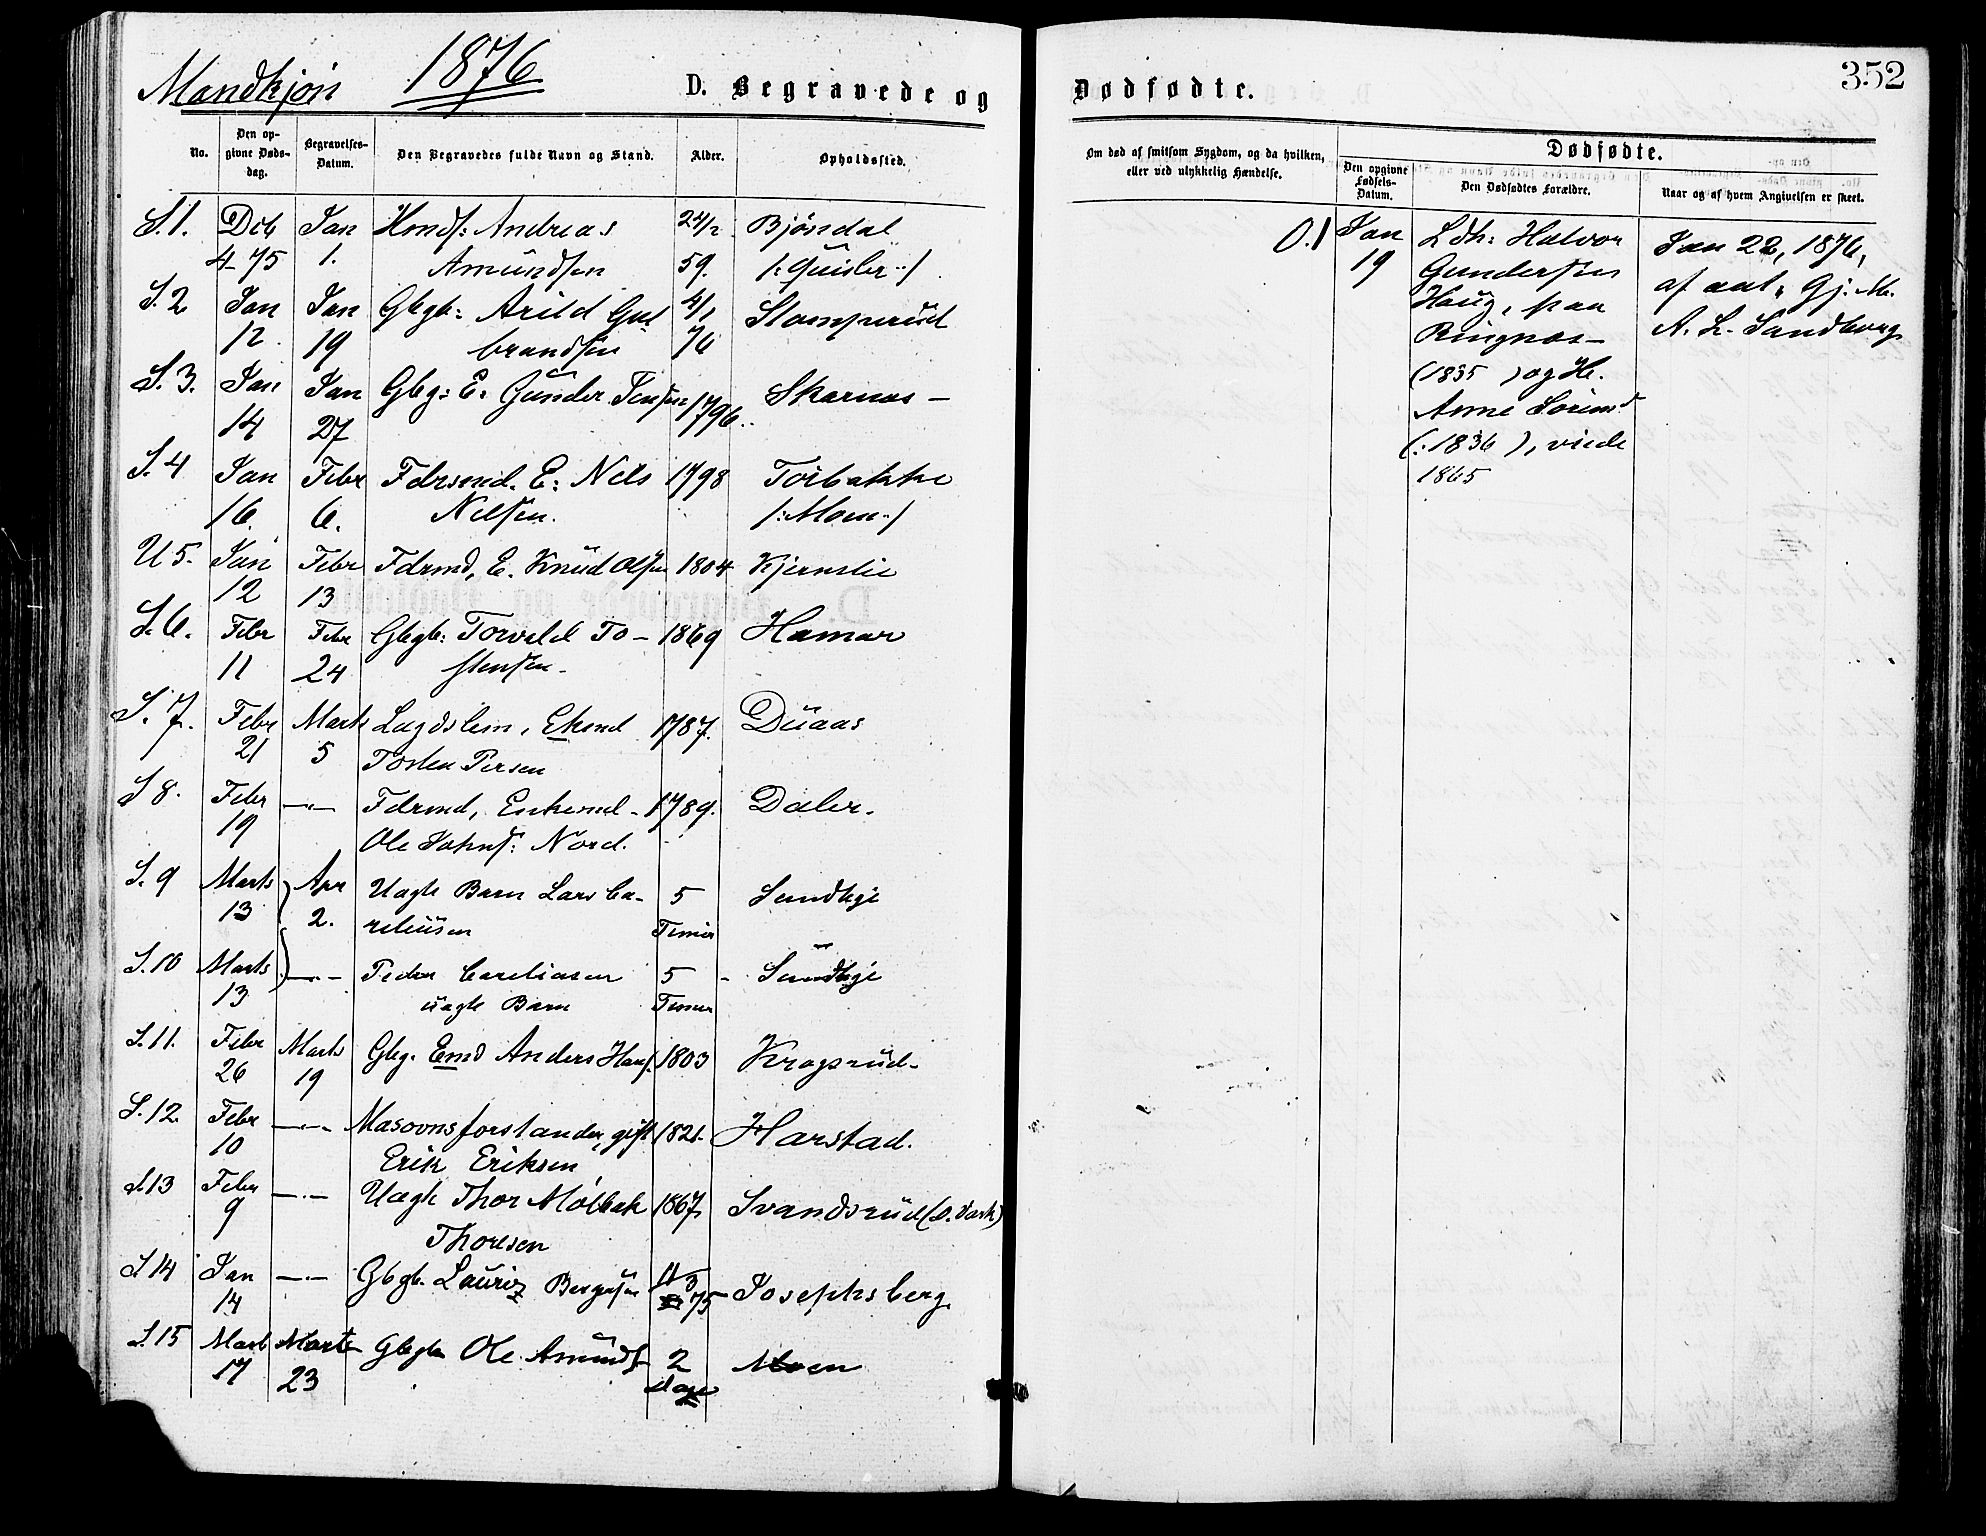 Mandkjön 1876 D. Begravede og
No. Den opgivne Dødsdag. Begravelses-Datum. Den Begravedes fulde Navn og Stand. Alder. Opholdssted.
S. 1. Dcb Jan Hmdf: Andreas 24/2 Bjöndal
4-75 1. Amundsen 59.
S. 2 Jan Jan Gbgb: Arild Gul 4/1 Stomperud
12. 19 brandsen 76
S. 3. Jan Jan Gbg: E: Gunder Jensen 1796. Skarnæs
14 27
S. 4 Jan Febr Fdrsmd. E: Nels 1798 Torbakke
16. 6. Nelsen. /:Moen:/
U 5. Jan Febr Fdrmd, E. Knud Olsen 1804 Kjernslie
12 13
S. 6. Febr Febr Gbgb: Torvald To- 1869 Hamar
11 24 stensen
S. 7. Febr Marts Lægdslem, Ekmd 1787. Duaas
21 5 Tosten Persen
S 8. Febr —"— Fdrmd, Enkemd 1789. Daler.
19 Ole Johns: Nord.
S. 9 Marts Apr Uægte Barn Lars Ca- 5 Sundhgie
13 2. reliusen Timer
S. 10 Marts —"— Peder Careliusen 5 Sundhgie
13 uægte Barn Timer
S. 11. Febr Marts Gbg. Emd Anders Hans. 1803 Kragsrud
26 19
S. 12. Febr —"— Masovnsforstander, gift 1821. Harstad.
10 Erik Eriksen
S. 13 Febr —"— Uægte Thor Mölbak 1867
9 Thoresen
S 14 Jan —"— Gbgb. Lauriz 11/3 Josephsberg.
14 75
S. 15 Marts Marts Gbgb Ole Amunds 2 Moen
17 23 dage
Dødfødte. 352
Om død af smitsom Sygdom, og da hvilken, eller ved ulykkelig Hændelse. Dødfødte.
Den opgivne Fødsels-Datum. Den Dødfødtes Forældre. Naar og af hvem Angivelsen er skeet.
0.1 Jan Ldh: Halvor Jan 22, 1876,
19 Gundersen af anl. Gj. M.
Haug, paa A. L. Sandberg
Ringnæs
(1835 ) og H.
Anne Sörensd
(:1836 ), viede
1865